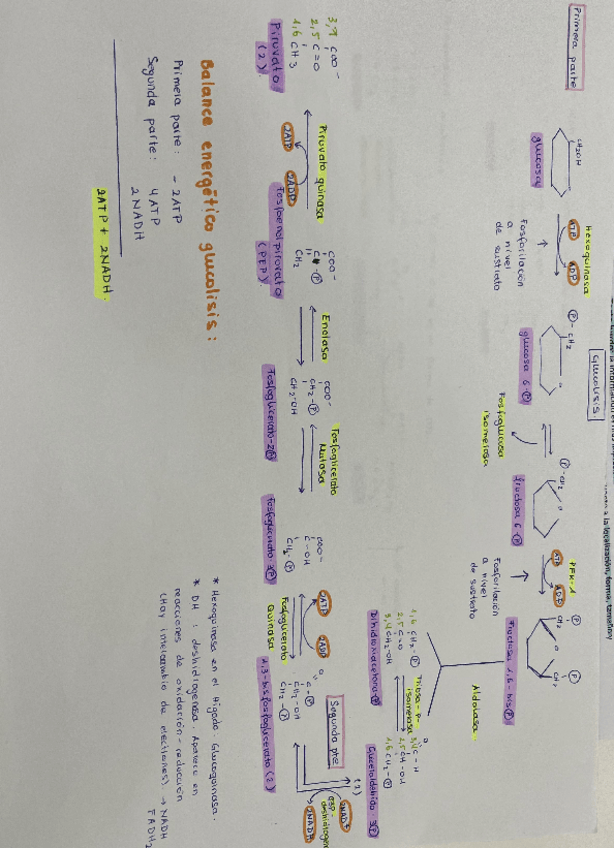 Glucolisis
Primera parte
CH2OH
glucosa
Hexoquinasa
ATP
ADP
Fosforilación
a nivel
de sustrato
P-CH2
glucosa 6-P
Fosfoglucosa
isomerasa
P-CH2
fructosa 6-P
PFK-1
ATP
ADP
Fosforilación
a nivel
de sustrato
Fructosa 1,6-bis P
Aldolasa
1,6 CH2-P
2,5 C=O
3,4 CH2-OH
Dihidroxiacetona-P
Triosa-P-
isomerasa
3,4 C-H
2,5 CH-OH
1,6 CH2-P
Gliceraldehído-3P
(2)
Segunda pte
2NAD+
G3P
deshidrogen
2NADH
C-P
CH-OH
CH2-P
1,3-bisfosfoglicerato (2)
2ADP
2ATP
Fosfoglicerato
Quinasa
COO-
C-OH
CH2-P
Fosfoglicerato-3P
Fosfoglicerato
Mutasa
COO-
CH2-P
CH2-OH
Fosfoglicerato-2P
Enolasa
COO-
C-P
CH2
Fosfoenolpiruvato
(PEP)
Piruvato quinasa
2ADP
2ATP
3,4 COO-
2,5 C=O
1,6 CH3
Piruvato
(2)
Balance energético glucolisis:
Primera parte: - 2ATP
Segunda parte: 4ATP
2NADH
2ATP + 2NADH.
* Hexoquinasa en el Hígado: Glucoquinasa.
* DH: deshidrogenasa. Aparece en
reacciones de oxidación-reducción
(Hay intercambio de electrones) → NADH
FADH2